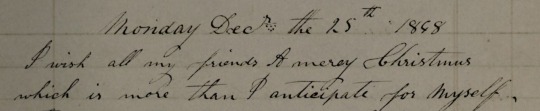 Monday Decr the 25th 1848
I wish all my friends A merey Christmus
which is more than I anticipate for myself.